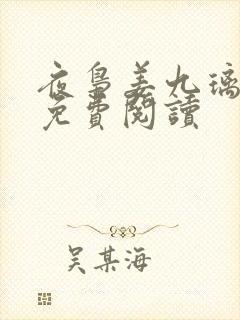 夜梟姜九璃
免費閱讀
吴某海